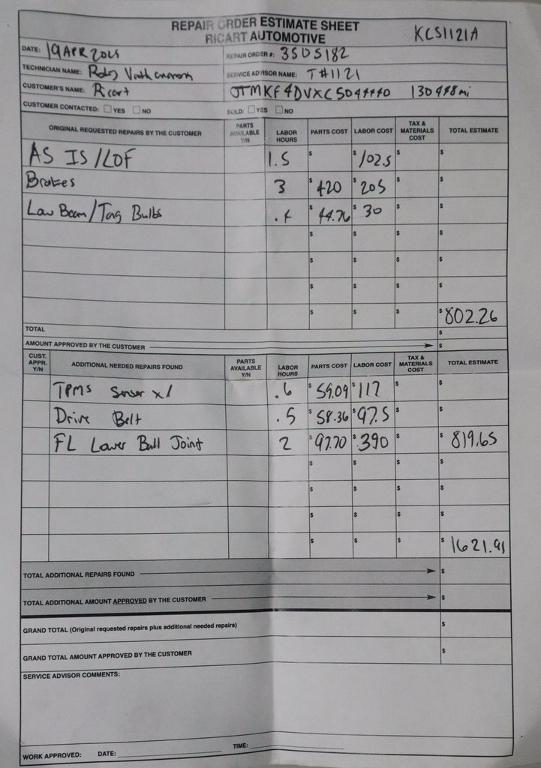 REPAIR ORDER ESTIMATE SHEET
RICART AUTOMOTIVE
KCS1121A
DATE: 19APR2025 REPAIR ORDER #: 35DS182
TECHNICIAN NAME: SERVICE ADVISOR NAME: T#1121
CUSTOMER'S NAME: Ricart JTMKF4DVXC5044440 130498mi
CUSTOMER CONTACTED: YES NO SOLD: YES NO
ORIGINAL REQUESTED REPAIRS BY THE CUSTOMER PARTS AVAILABLE Y/N LABOR HOURS PARTS COST LABOR COST TAX & MATERIALS COST TOTAL ESTIMATE
AS IS/LOF 1.5 $ 102.5 $ $
Brakes 3 $420 $205 $ $
Low Beam/Tag Bulbs .4 $44.76 $30 $ $
$ $ $ $
$ $ $ $
$ $ $ $
$ $ $ $802.26
TOTAL $
AMOUNT APPROVED BY THE CUSTOMER $
CUST. APPR. Y/N ADDITIONAL NEEDED REPAIRS FOUND PARTS AVAILABLE Y/N LABOR HOURS PARTS COST LABOR COST TAX & MATERIALS COST TOTAL ESTIMATE
TPMS Sensor x1 .6 $59.09 $117 $ $
Drive Belt .5 $58.36 $97.5 $ $
FL Lower Ball Joint 2 $97.70 $390 $ $819.65
$ $ $ $
$ $ $ $
$ $ $ $
$ $ $ $1621.91
TOTAL ADDITIONAL REPAIRS FOUND $
TOTAL ADDITIONAL AMOUNT APPROVED BY THE CUSTOMER $
GRAND TOTAL (Original requested repairs plus additional needed repairs) $
GRAND TOTAL AMOUNT APPROVED BY THE CUSTOMER $
SERVICE ADVISOR COMMENTS:
WORK APPROVED: DATE: TIME: